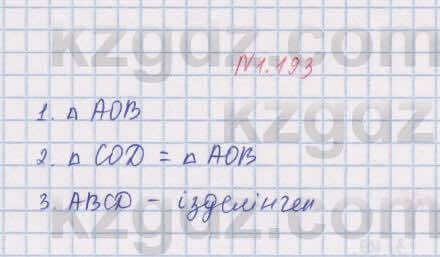 kzgdz.com
№1.193
1. △ AOB
2. △ COD = △ AOB
3. ABCD - ізделінген